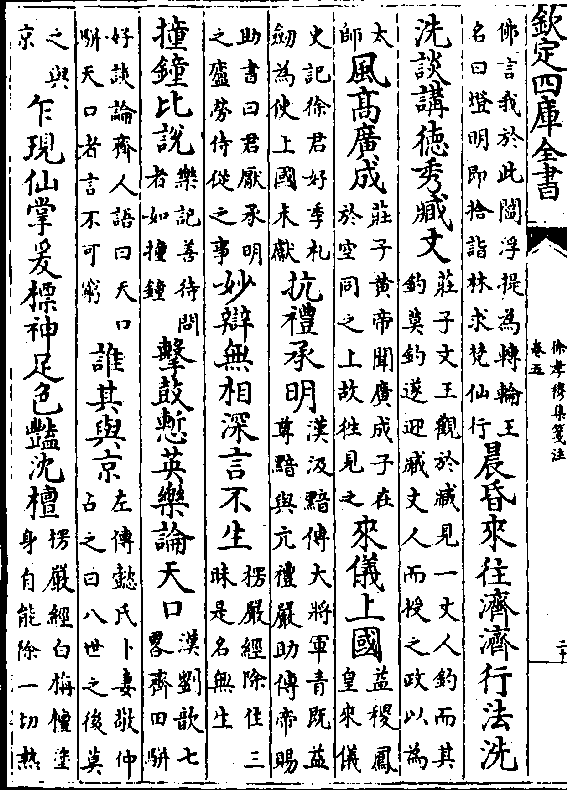 欽定四庫全書
徐孝穆集箋注
卷五
二十
佛言我於此閻浮提為轉輪王
名曰燈明即捨詣林求梵仙行
晨昏來往濟濟行法洗
洗談講德秀臧丈
莊子文王觀於臧見一丈人釣而其
釣莫釣遂迎臧丈人而授之政以為
太
師
風高廣成
莊子黃帝聞廣成子在
於空同之上故往見之
來儀上國
益稷鳳
皇來儀
史記徐君好季札
劒為使上國未獻
抗禮承明
漢汲黯傳大將軍青既益
尊黯與亢禮嚴助傳帝賜
助書曰君厭承明
之廬勞侍從之事
妙辯無相深言不生
楞嚴經除住三
昧是名無生
撞鐘比說
樂記善待問
者如撞鐘
擊鼓慙英樂論天口
漢劉歆七
畧齊田駢
好談論齊人語曰天口
駢天口者言不可窮
誰其與京
左傳懿氏卜妻敬仲
占之曰八世之後莫
之與
京
乍現仙掌爰標神足色豔沈檀
楞嚴經白栴檀塗
身自能除一切熱